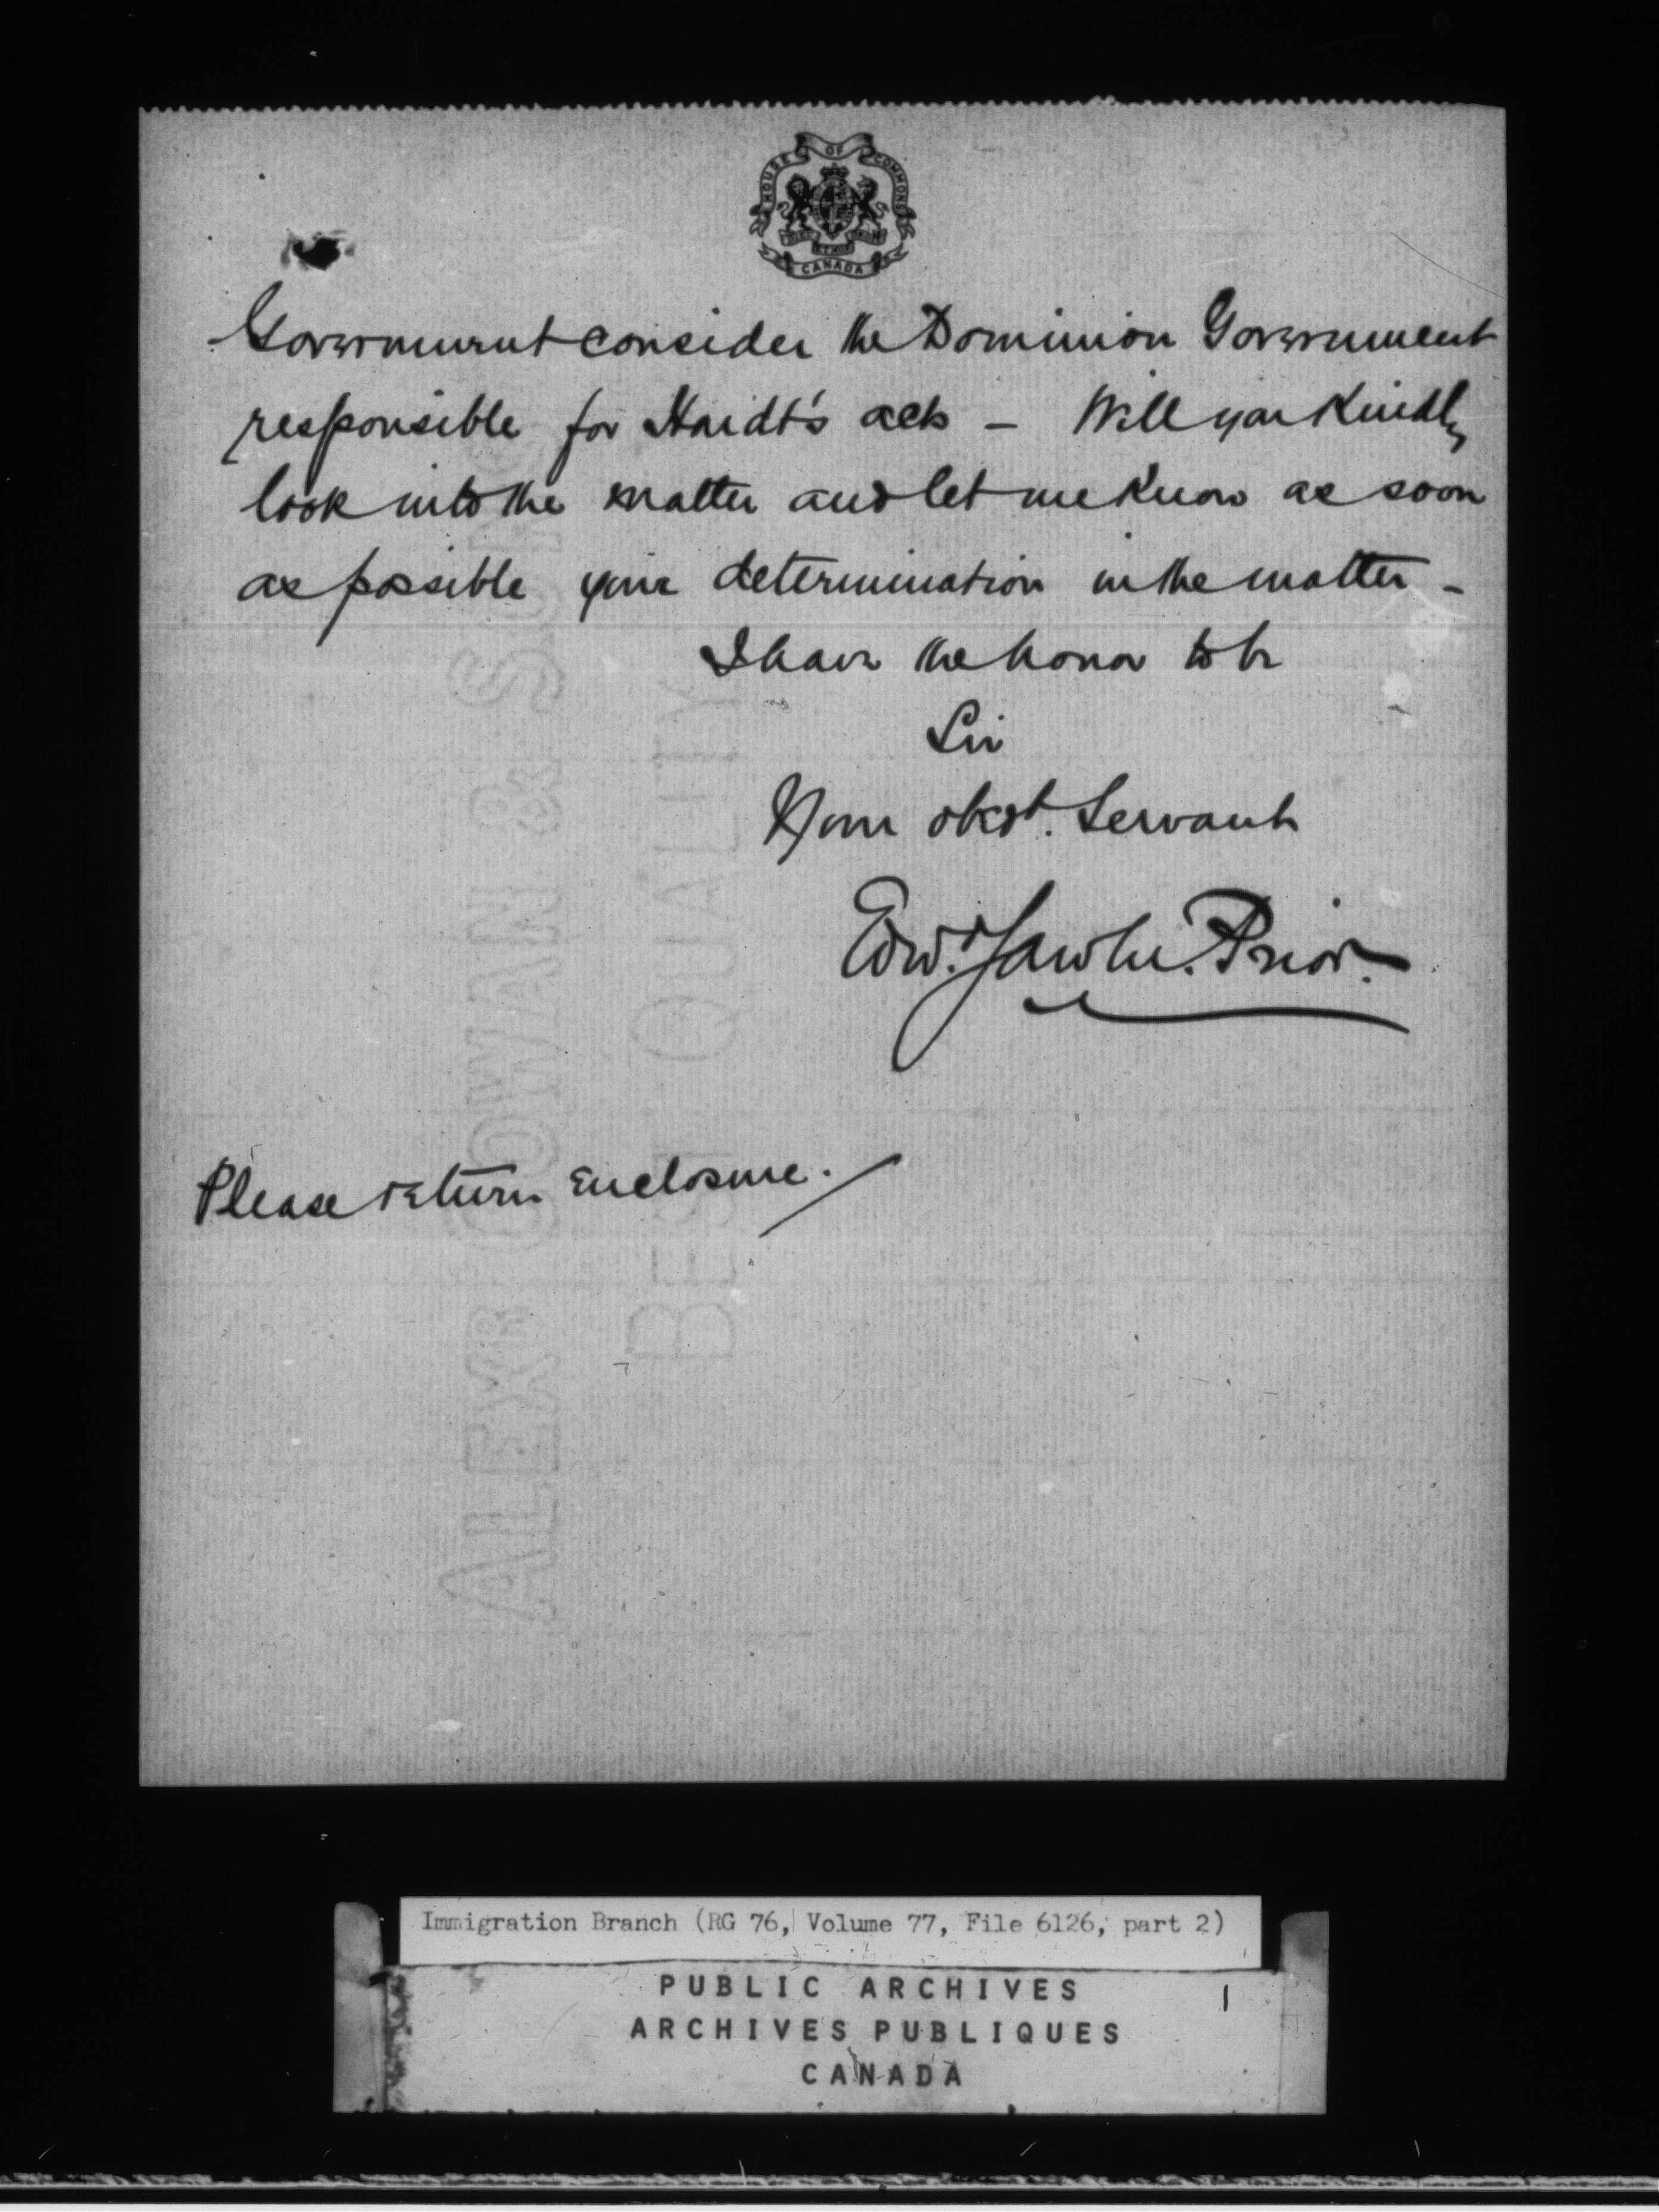 HOUSE OF COMMONS
CANADA
Government consider the Dominion Government
responsible for Haidt's acts – Will you Kindly
look into the matter and let me Know as soon
as possible your determination in the matter –
I have the honor to be
Sir
Your obedt. Servant
Edwd. Gawler. Prior.
Please return Enclosure.
ALEXR COWAN & SONS
BEST QUALITY
Immigration Branch (RG 76, Volume 77, File 6126, part 2)
PUBLIC ARCHIVES
ARCHIVES PUBLIQUES
CANADA
1